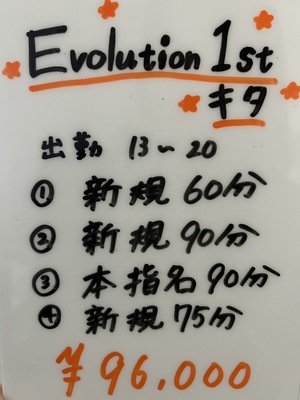 Evolution 1st
キタ
出勤 13～20
① 新規 60分
② 新規 90分
③ 本指名 90分
④ 新規 75分
¥96,000